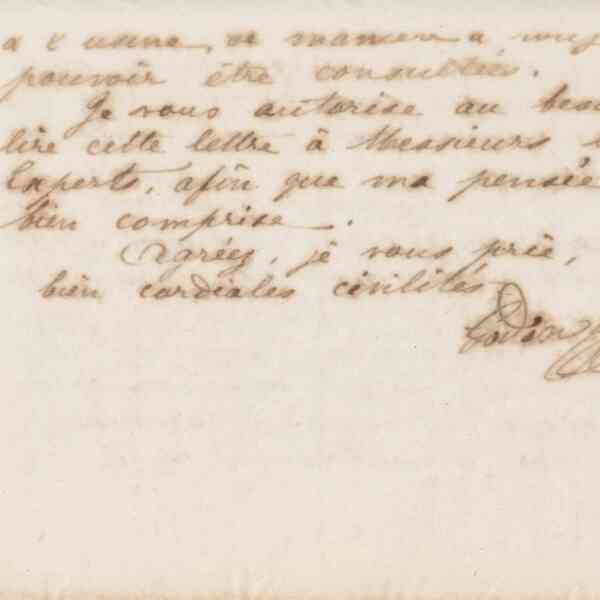 de manière à
pouvoir être consultés.
Je vous autorise au
lire cette lettre à Messieurs
Experts, afin que ma pensée
bien comprise.
Agréez, je vous prie,
bien cordiales civilités
Godin